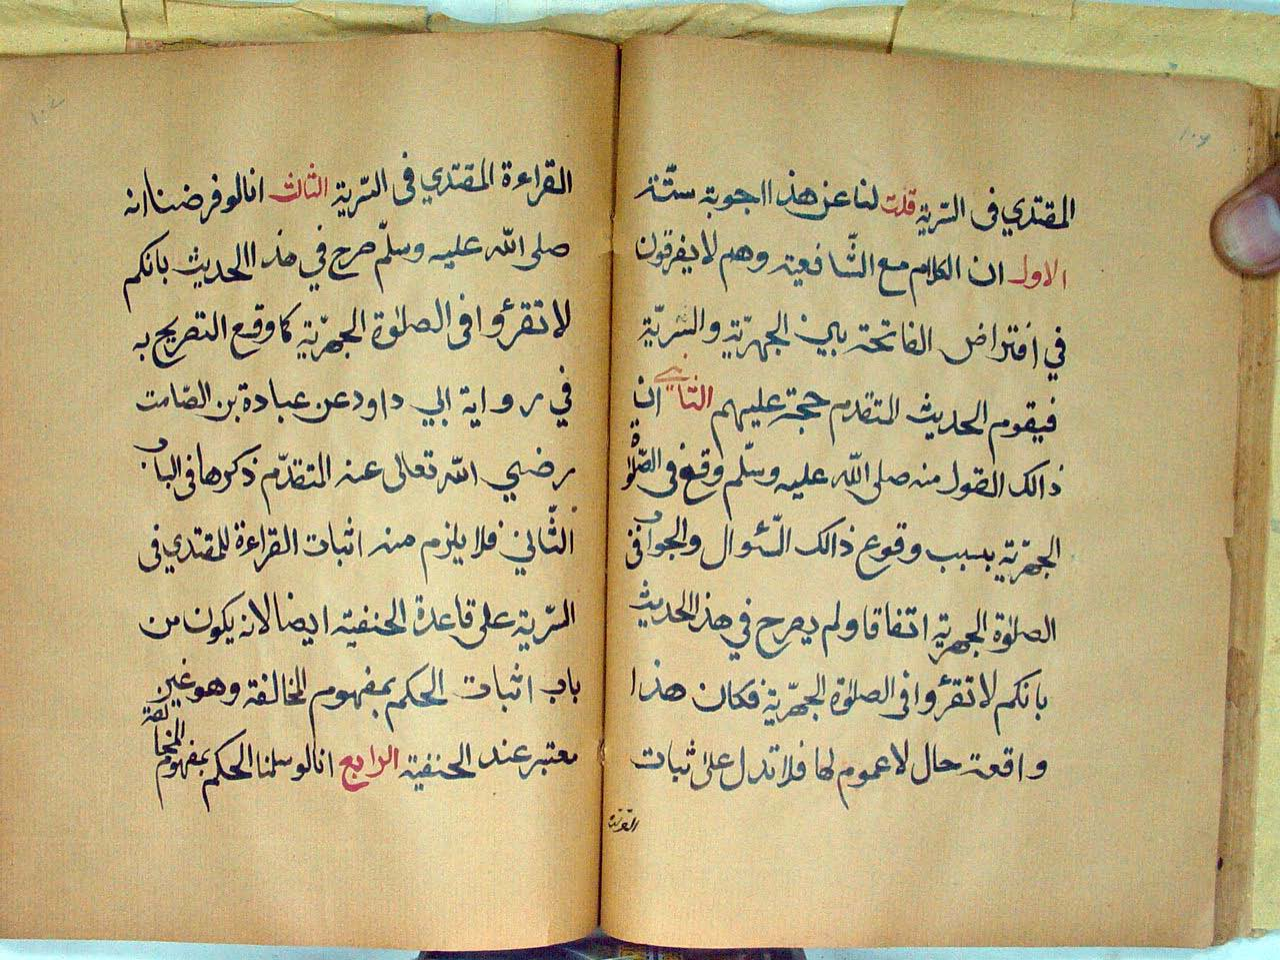 ١٠٦
المقتدي فى السّرية قلت لنا عن هذا اجوبة ستّة
الاول ان الكلام مع الشّافعية وهم لا يفرقون
في افتراض الفاتحة بين الجهريّة والسّريّة
فيقوم الحديث المتقدم حجة عليهم الثاني ان
ذالك القول منه صلى الله عليه وسلّم وقع فى الصّلوٰة
الجهرّية بسبب وقوع ذالك السّئوال والجواب فى
الصلوٰة الجهرية اتفاقا ولم يصرح في هذا الحديث
بانكم لا تقرؤا فى الصلوٰة الجهرّية فكان هذا
واقعة حال لا عموم لها فلا تدل على اثبات
القراءة
١٠٧
القراءة المقتدي فى السّرية الثالث انا لو فرضنا انه
صلى الله عليه وسلّم صرح في هذا الحديث بانكم
لا تقرؤا فى الصلوٰة الجهرّية كما وقع التصريح به
في رواية ابي داود عن عبادة بن الصّامت
رضي الله تعالى عنه المتقدّم ذكرها فى الباب
الثّاني فلا يلزم منه اثبات القراءة للمقتدي فى
السّرية على قاعدة الحنفية ايضا لانه يكون من
باب اثبات الحكم بمفهوم المخالفة وهو غير
معتبر عند الحنفية الرابع انا لو سلمنا الحكم بمفهوم المخالفة